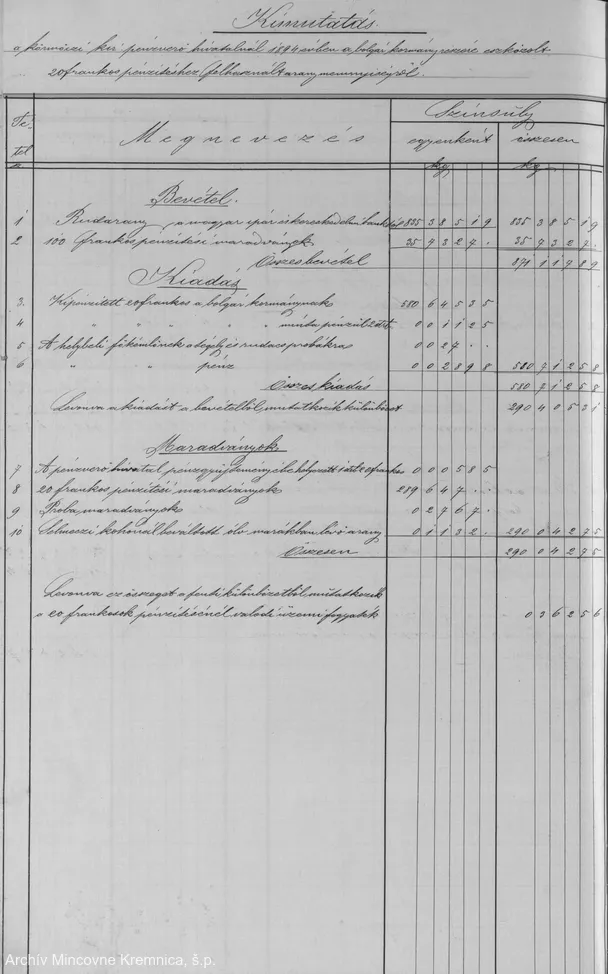 Kimutatás
a körmöczi kir. pénzverő hivatalnál 1894 évben a bolgár kormány részére eszközölt
20 frankos pénzítéshez felhasznált arany mennyiségről.
Té-
tel
Megnevezés
Színsúly
egyenként összesen
kg kg
Bevétel.
1 Rudarany a magyar ipar és kereskedelmi banktól 835 38519 835 38519
2 100 frankos pénzítési maradványok 35 7327. 35 7327.
Összes bevétel 871 11789
Kiadás
3. Kipénzített 20 frankos a bolgár kormánynak 580 64535
4 " " " " mustra pénzül 0 01125
5 A helybeli főkémlőnek a tégely és rudacs próbákra 0 027..
6 " " pénz 0 02898 580 71258
Összes kiadás 580 71258
Levonva a kiadást a bevételből, mutatkozik különbözet 290 40531
Maradványok
7 A pénzverő hivatal pénzgyűjteményébe helyezett 1 drb 20 frankos 0 00585
8 20 frankos pénzítési maradványok 289 647..
9 Próba maradványok 0 2767.
10 Selmeczi kohónál beváltott óló marákban levő arany 0 1132. 290 04275
Összesen 290 04275
Levonva ez összeget a fenti különbözetből, mutatkozik
a 20 frankosok pénzítésénél valódi üzemi fogyaték 0 36256
Archív Mincovne Kremnica, š.p.